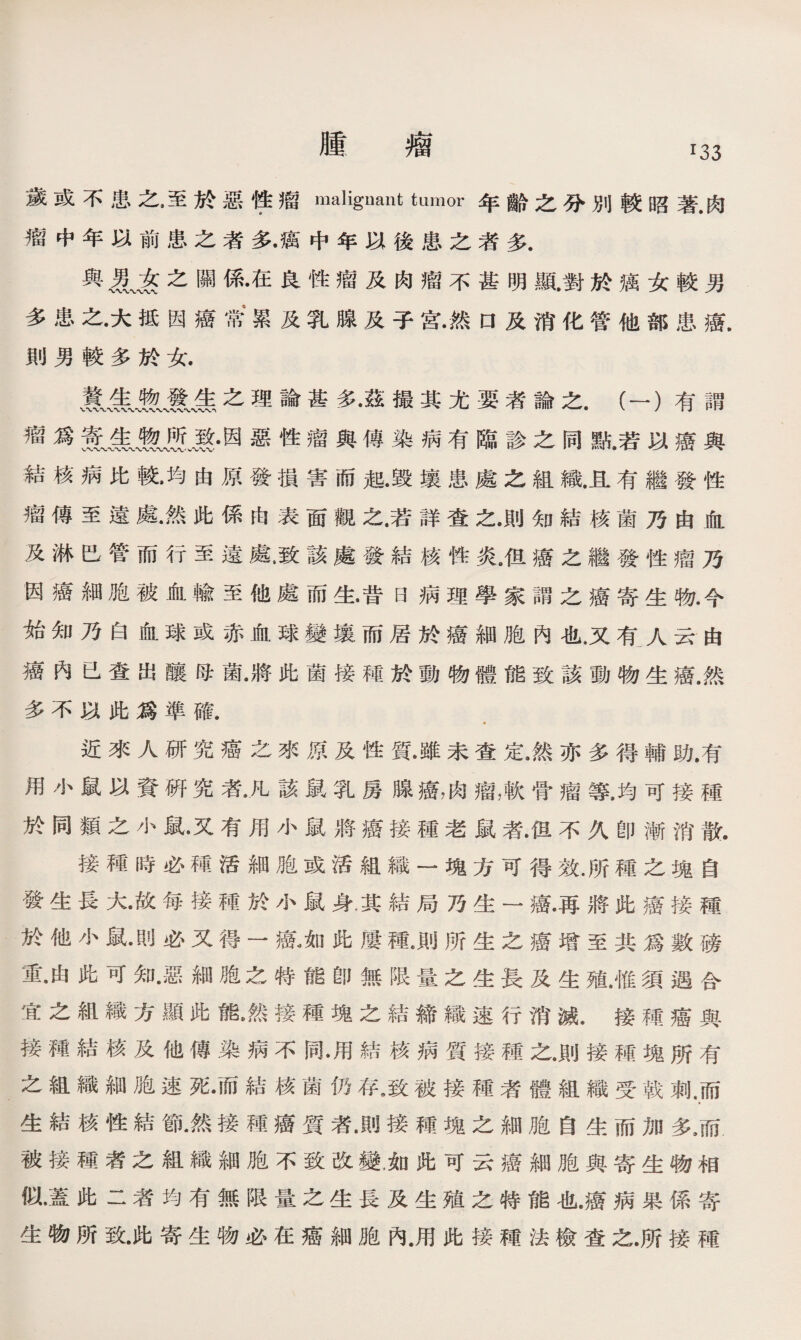 腫瘤 133
歲或不患之.至於惡性瘤 malignant tumor 年齡之分別較昭著.肉
瘤中年以前患之者多.癌中年以後患之者多.
與男女之關係.在良性瘤及肉瘤不甚明顯.對於癌女較男
多患之.大抵因癌常累及乳腺及子宮.然口及消化管他部患癌.
則男較多於女.
贅生物發生之理論甚多.茲撮其尤要者論之. (一)有謂
瘤爲寄生物所致.因惡性瘤與傳染病有臨診之同點.若以癌與
結核病比較.均由原發損害而起.毀壞患處之組織.且有繼發性
瘤傳至遠處.然此係由表面觀之.若詳查之.則知結核菌乃由血
及淋巴管而行至遠處.致該處發結核性炎.但癌之繼發性瘤乃
因癌細胞被血輸至他處而生.昔日病理學家謂之癌寄生物.今
始知乃白血球或赤血球變壞而居於癌細胞內也.又有人云由
癌內已查出釀母菌.將此菌接種於動物體能致該動物生癌.然
多不以此爲準確.
近來人研究癌之來原及性質.雖未查定.然亦多得輔助.有
用小鼠以資研究者.凡該鼠乳房腺癌,肉瘤,軟骨瘤等.均可接種
於同類之小鼠.又有用小鼠將癌接種老鼠者.但不久卽漸消散.
接種時必種活細胞或活組織一塊方可得效.所種之塊自
發生長大.故每接種於小鼠身.其結局乃生一癌.再將此癌接種
於他小鼠.則必又得一癌.如此屢種.則所生之癌增至共爲數磅
重.由此可知.惡細胞之特能卽無限量之生長及生殖.惟須遇合
宜之組織方顯此能.然接種塊之結締織速行消滅. 接種癌與
接種結核及他傳染病不同.用結核病質接種之.則接種塊所有
之組織細胞速死.而結核菌仍存.致被接種者體組織受戟刺.而
生結核性結節.然接種癌質者.則接種塊之細胞自生而加多.而
被接種者之組織細胞不致改變.如此可云癌細胞與寄生物相
似.蓋此二者均有無限量之生長及生殖之特能也.癌病果係寄
生物所致.此寄生物必在癌細胞內.用此接種法檢查之.所接種